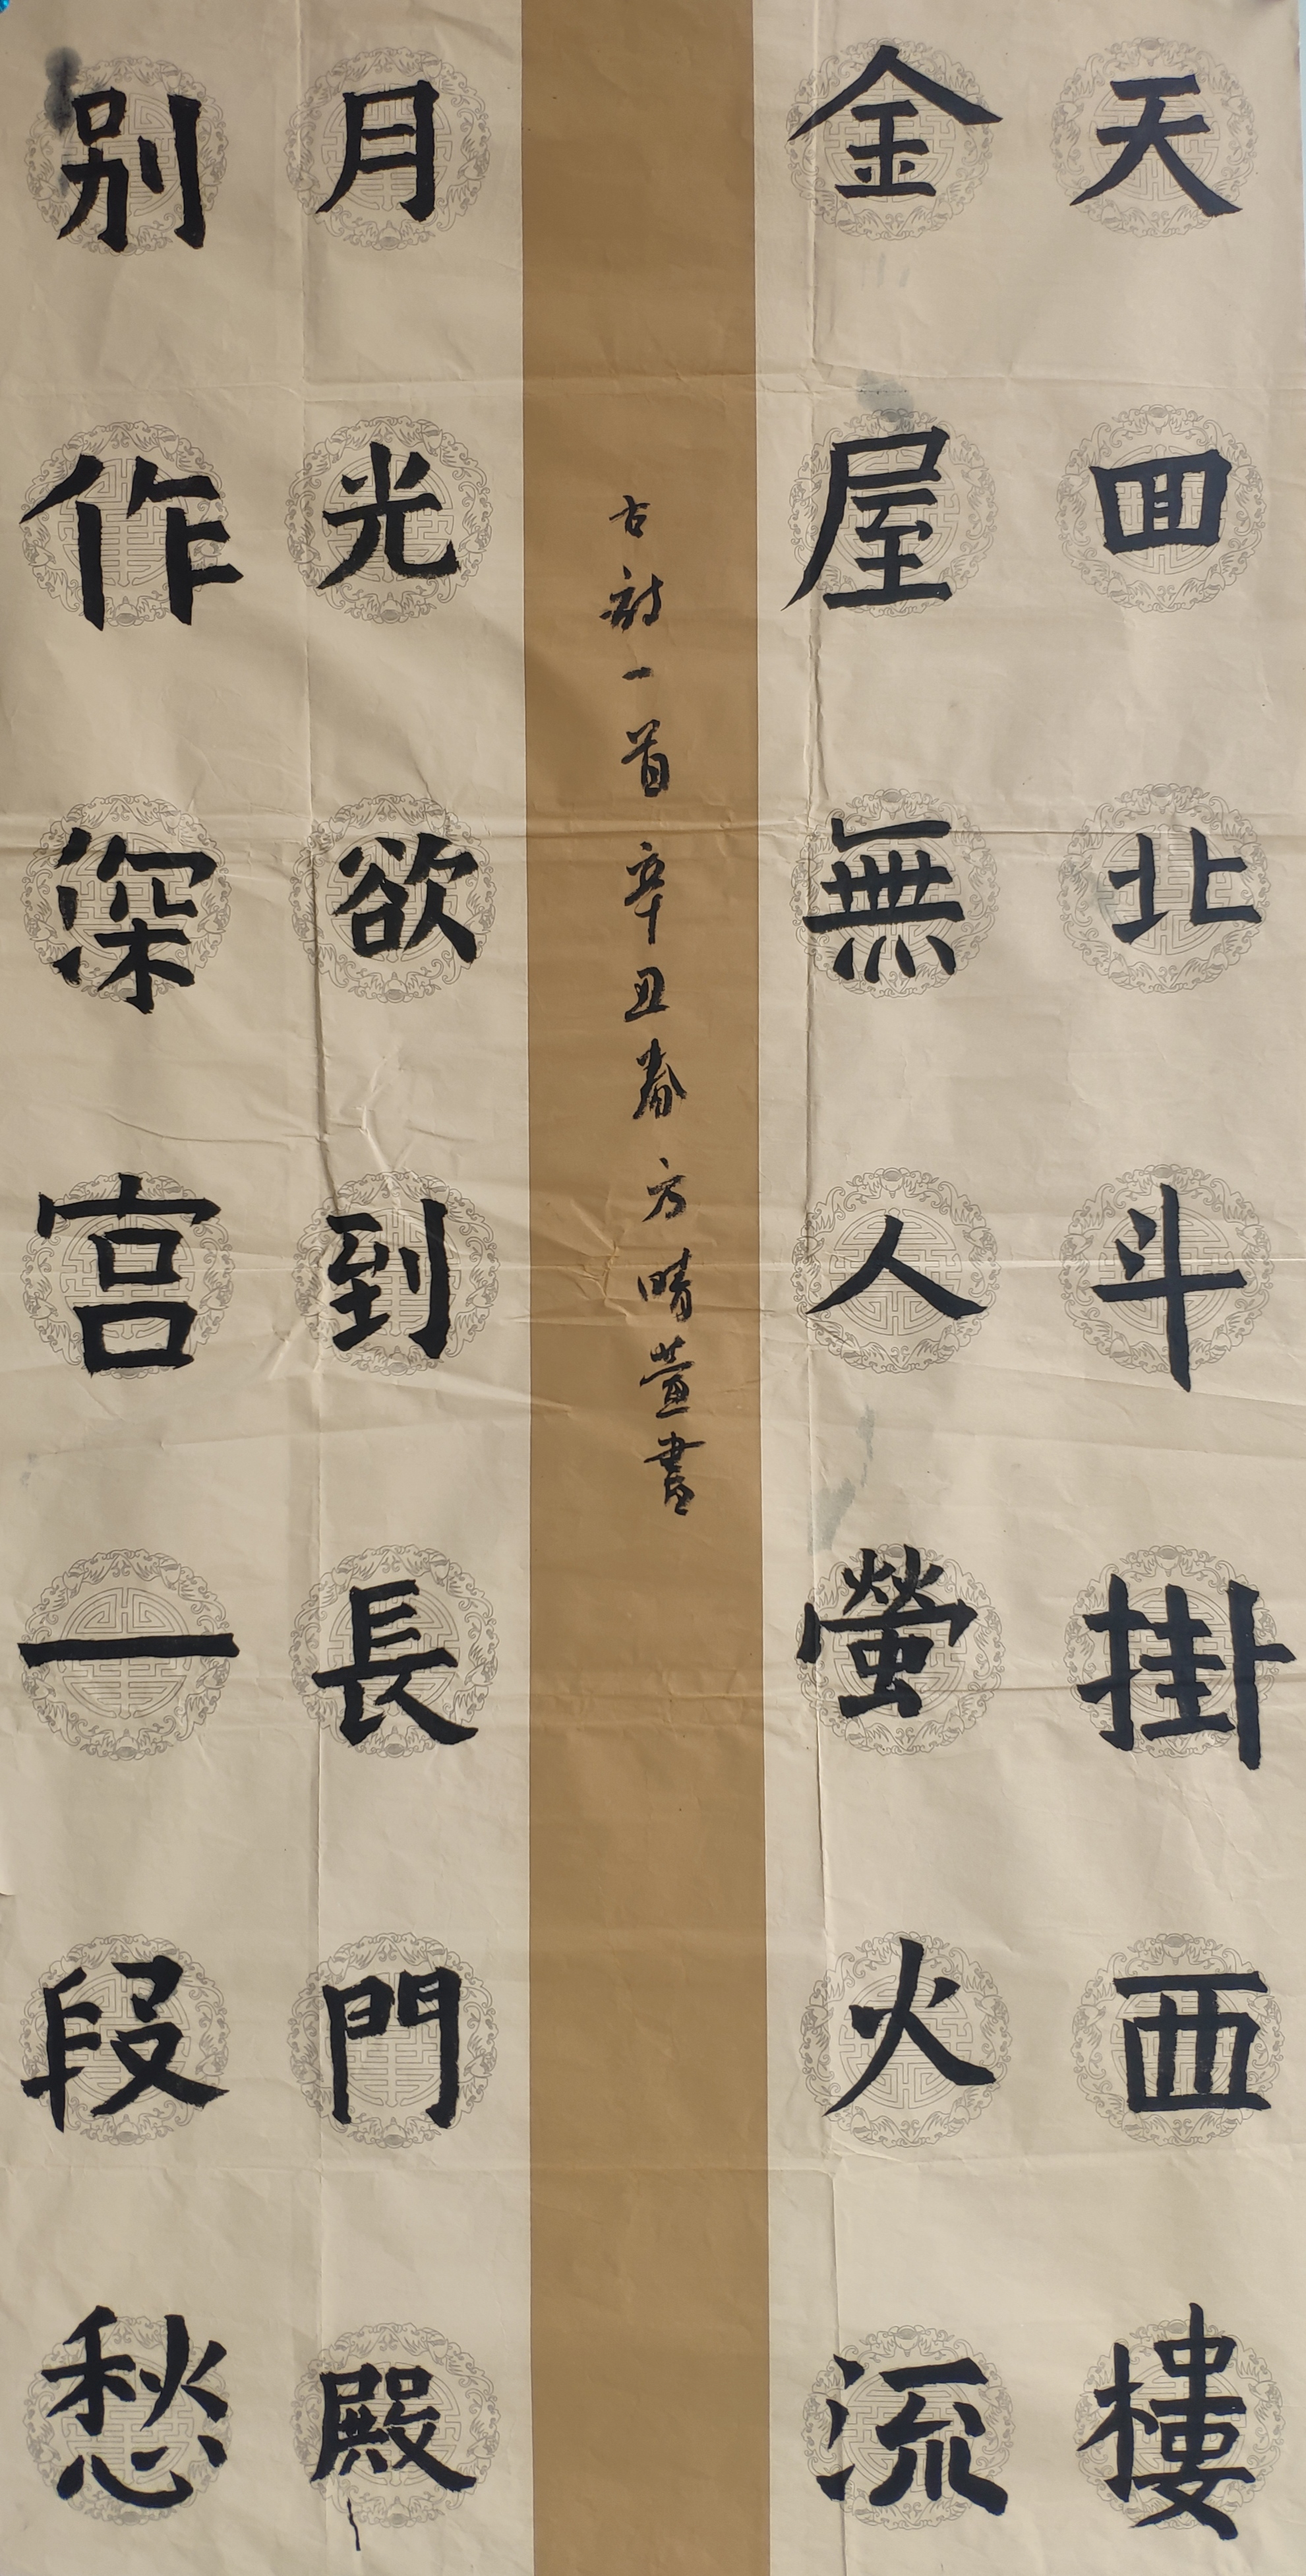 天囬北斗掛西樓
金屋無人螢火流
月光欲到長門殿
别作深宫一段愁
古詩一首辛丑春方晴萱書